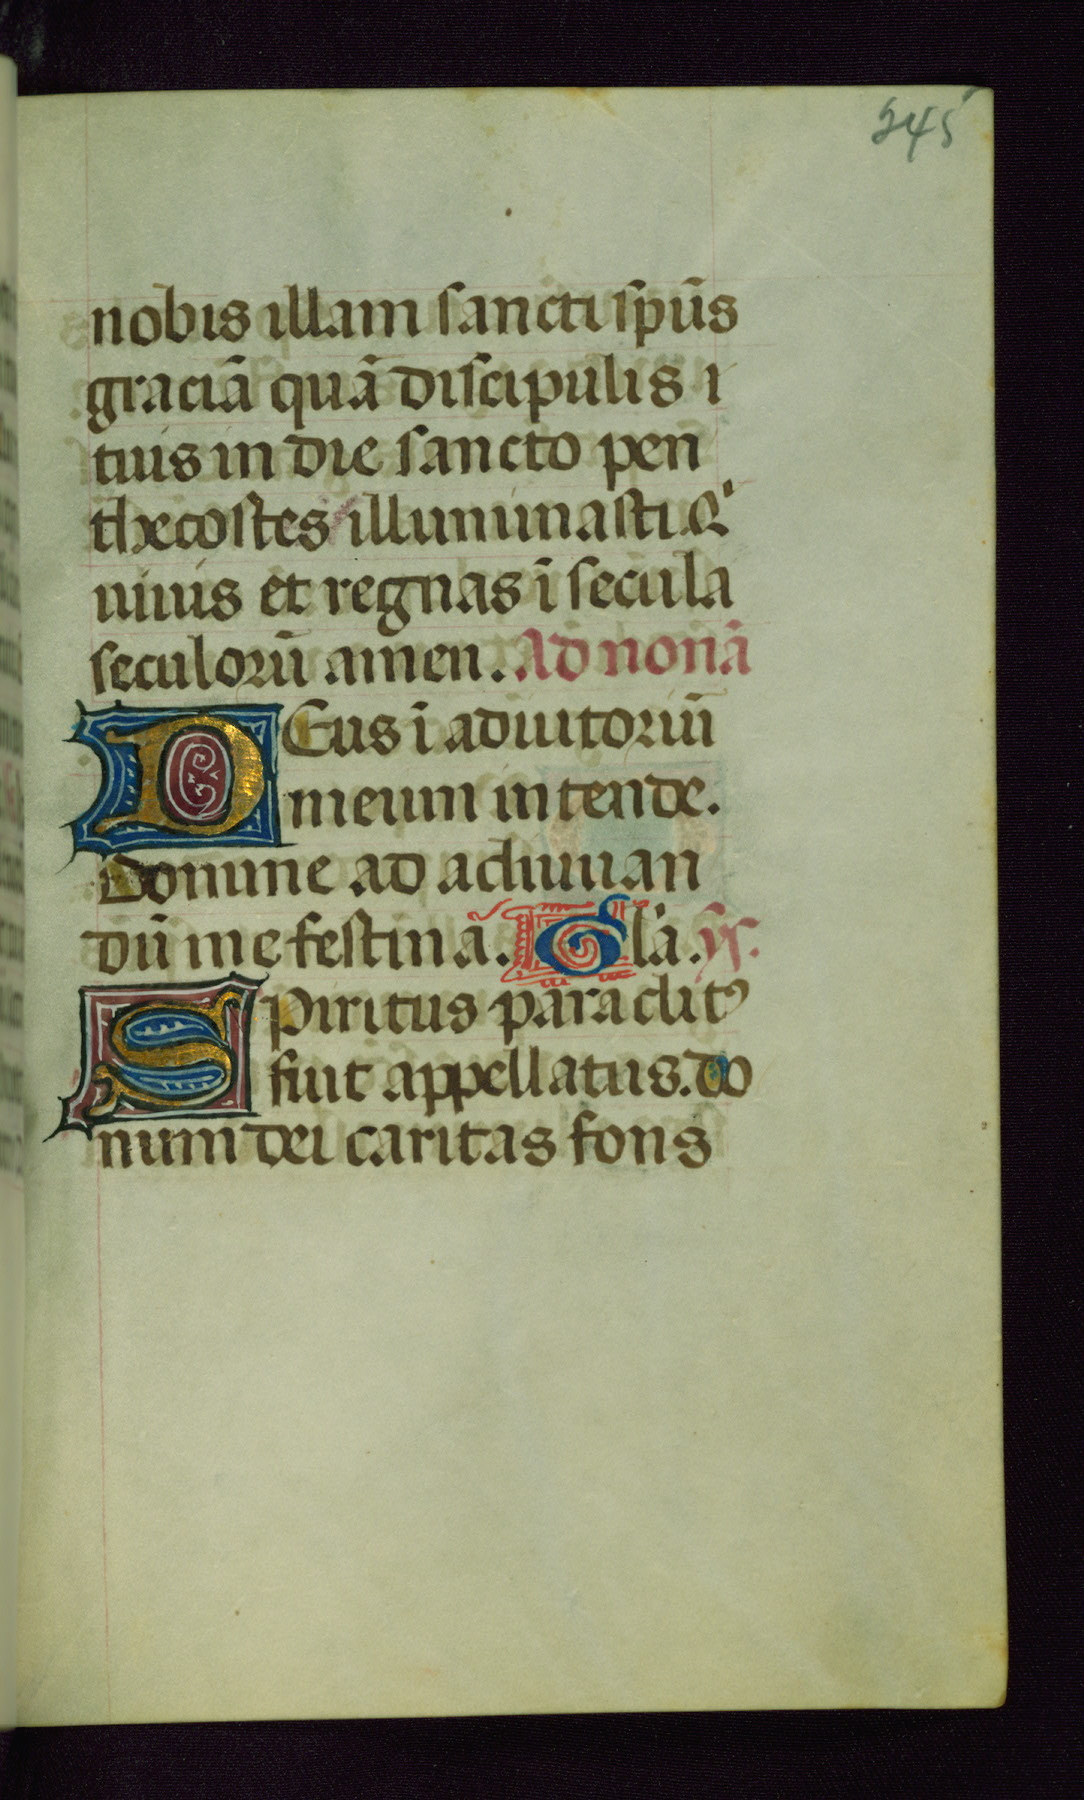 245
nobis illam sancti spūs
graciā quā discipulis i
tuis in die sancto pen
thecostes illuminasti. Q
uiuis et regnas ī secula
seculorū amen. Ad nonā
DEus ī adiutoriū
meum intende.
Domine ad adiuuan
dū me festina. Gla. ys.
SPiritus paraclitꝰ
fuit appellatus. do
num dei caritas fons